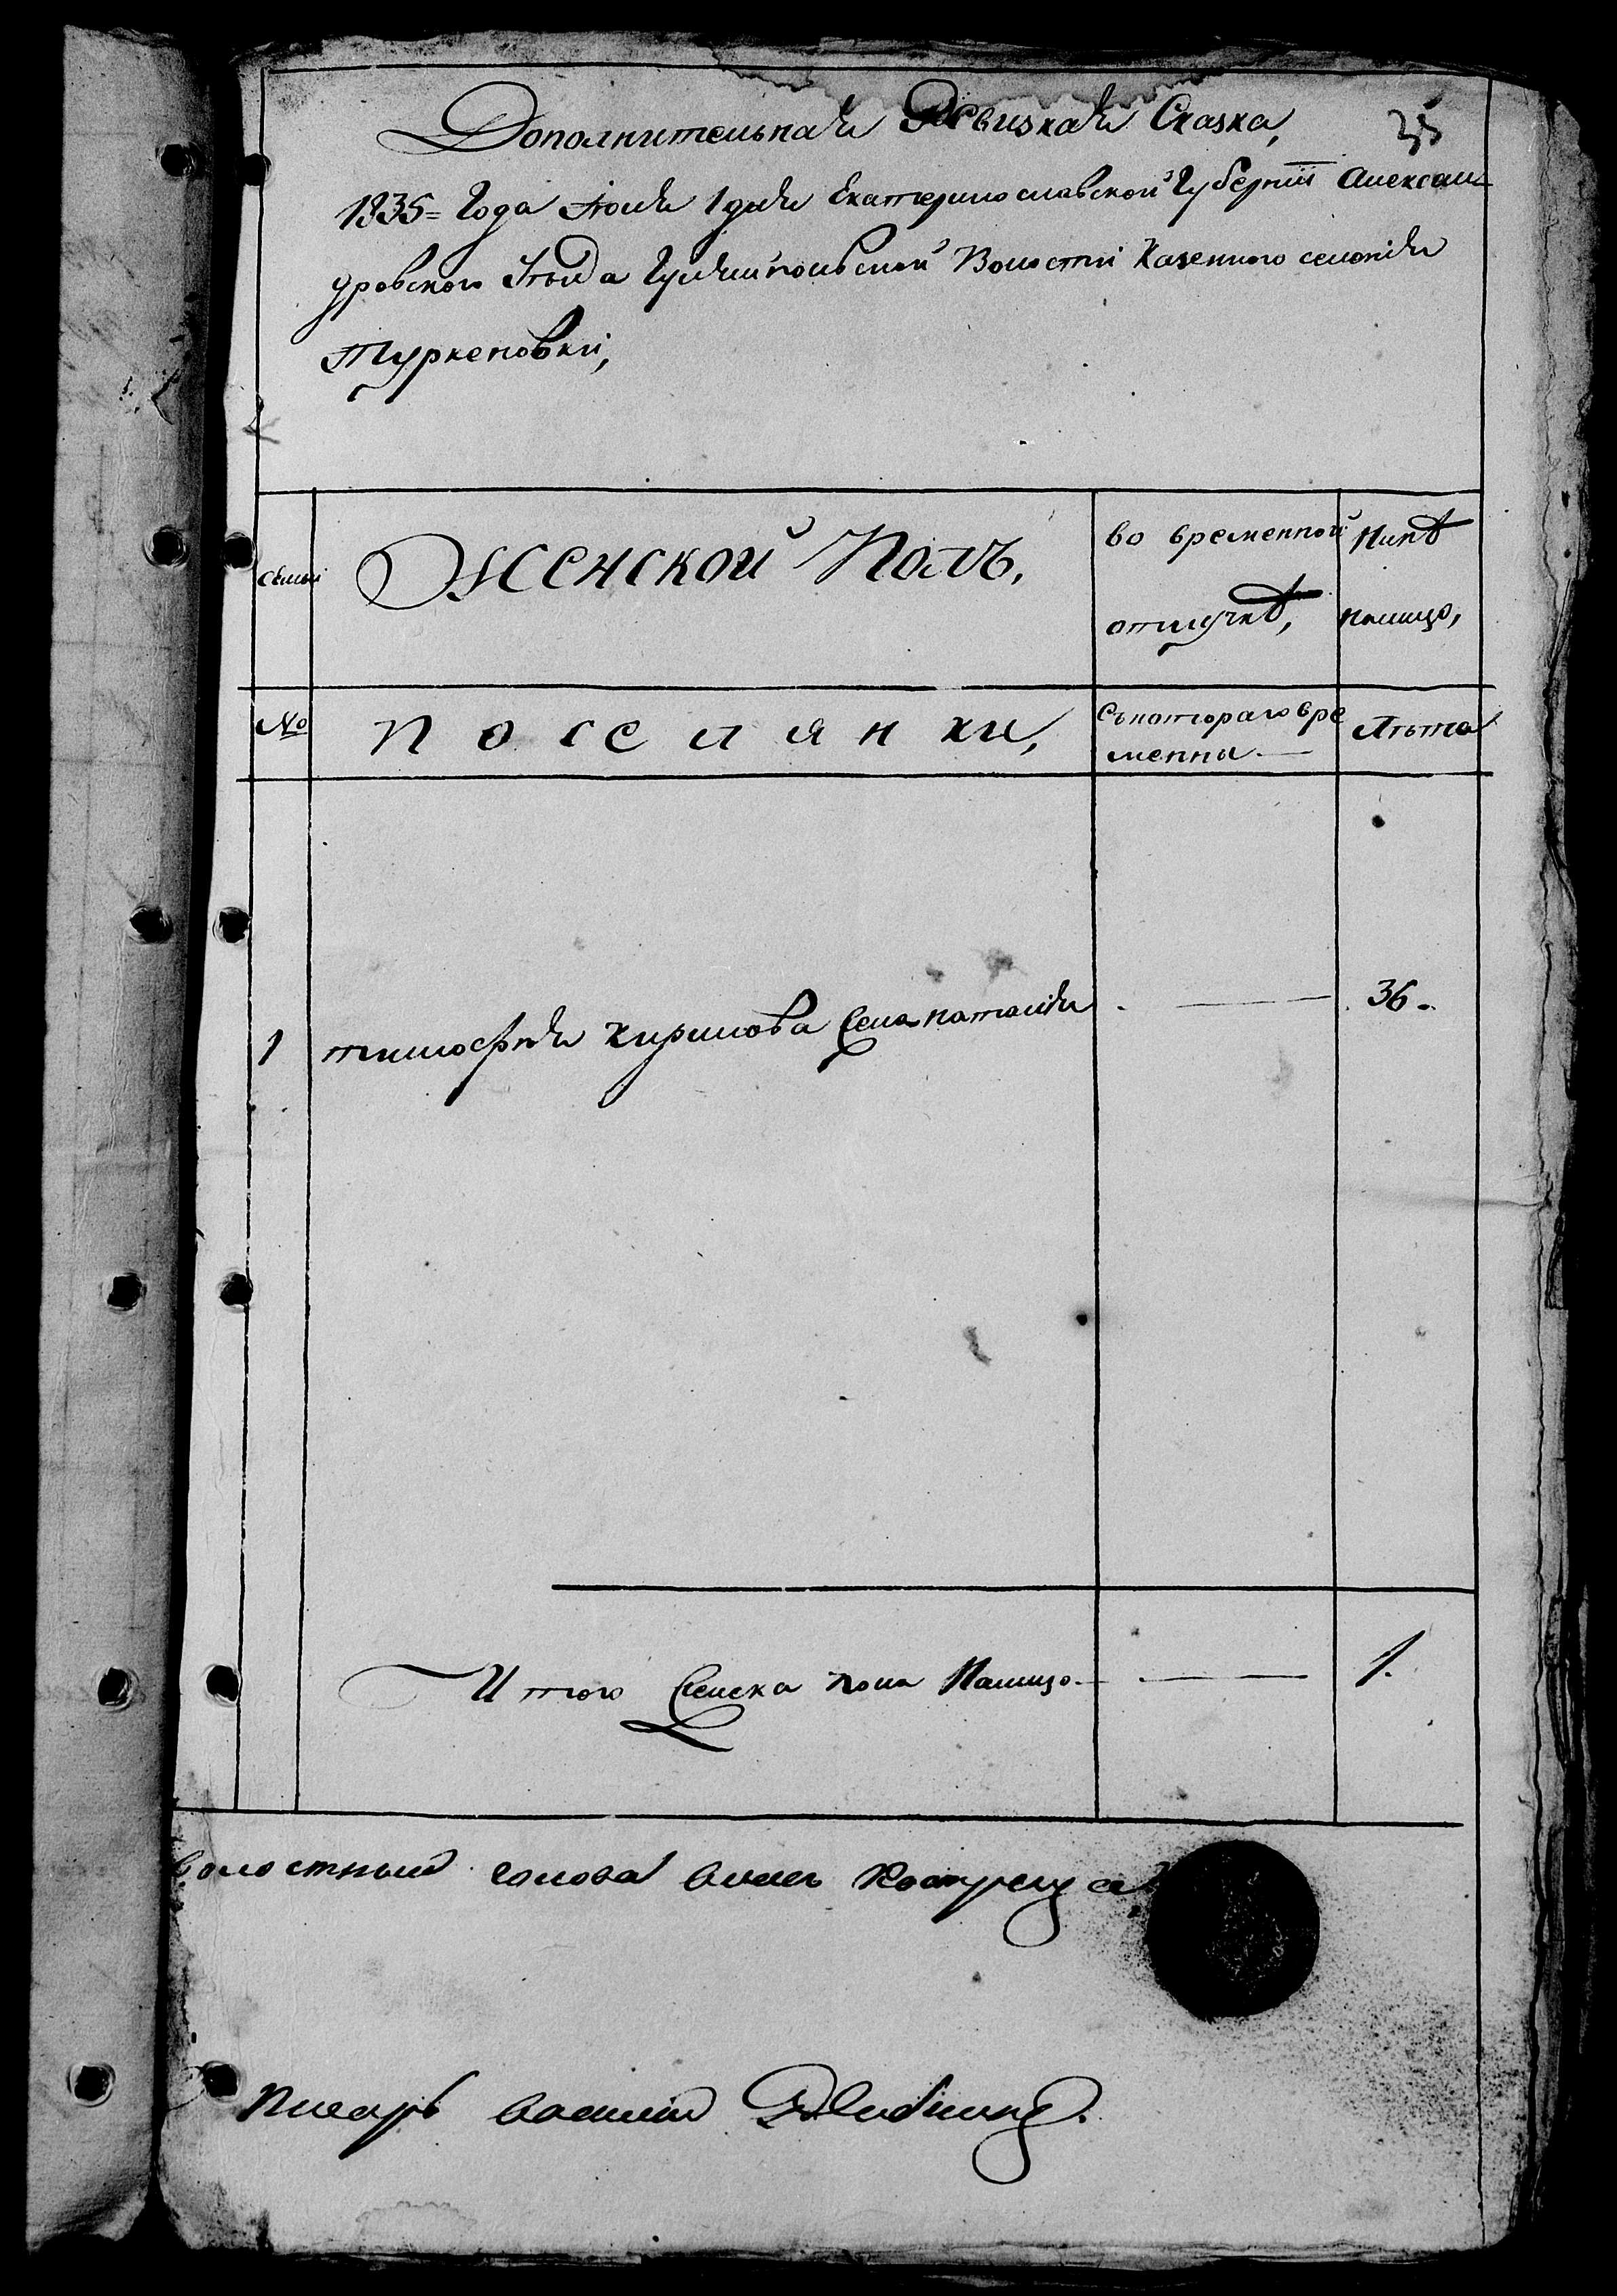 Дополнительная Ревизкая Сказка,
35
1835= Года Июля 1 дня Екатеринославской Губернии Алексан
дровского Уѣзда Гуляйпольской Волости Казенного селения
Туркеновки,
семьи
Женской Полъ,
во временной
отлучкѣ,
Нинѣ
налицо,
№
поселянки,
Съ котораго вре
менны
Лѣта
1 тимофея кирилова жена наталия — 36.
Итого женска пола Налицо — 1.
волостный голова
Писарь василий